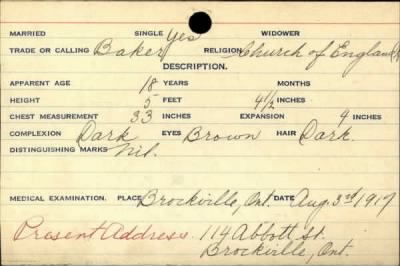 MARRIED SINGLE Yes WIDOWER
TRADE OR CALLING Baker RELIGION Church of England
DESCRIPTION.
APPARENT AGE 18 YEARS MONTHS
HEIGHT 5 FEET 4½ INCHES
CHEST MEASUREMENT 33 INCHES EXPANSION 4 INCHES
COMPLEXION Dark EYES Brown HAIR Dark.
DISTINGUISHING MARKS Nil.
MEDICAL EXAMINATION. PLACE Brockville, Ont. DATE Aug. 3rd 1917
Present Address. 114 Abbott St.
Brockville, Ont.